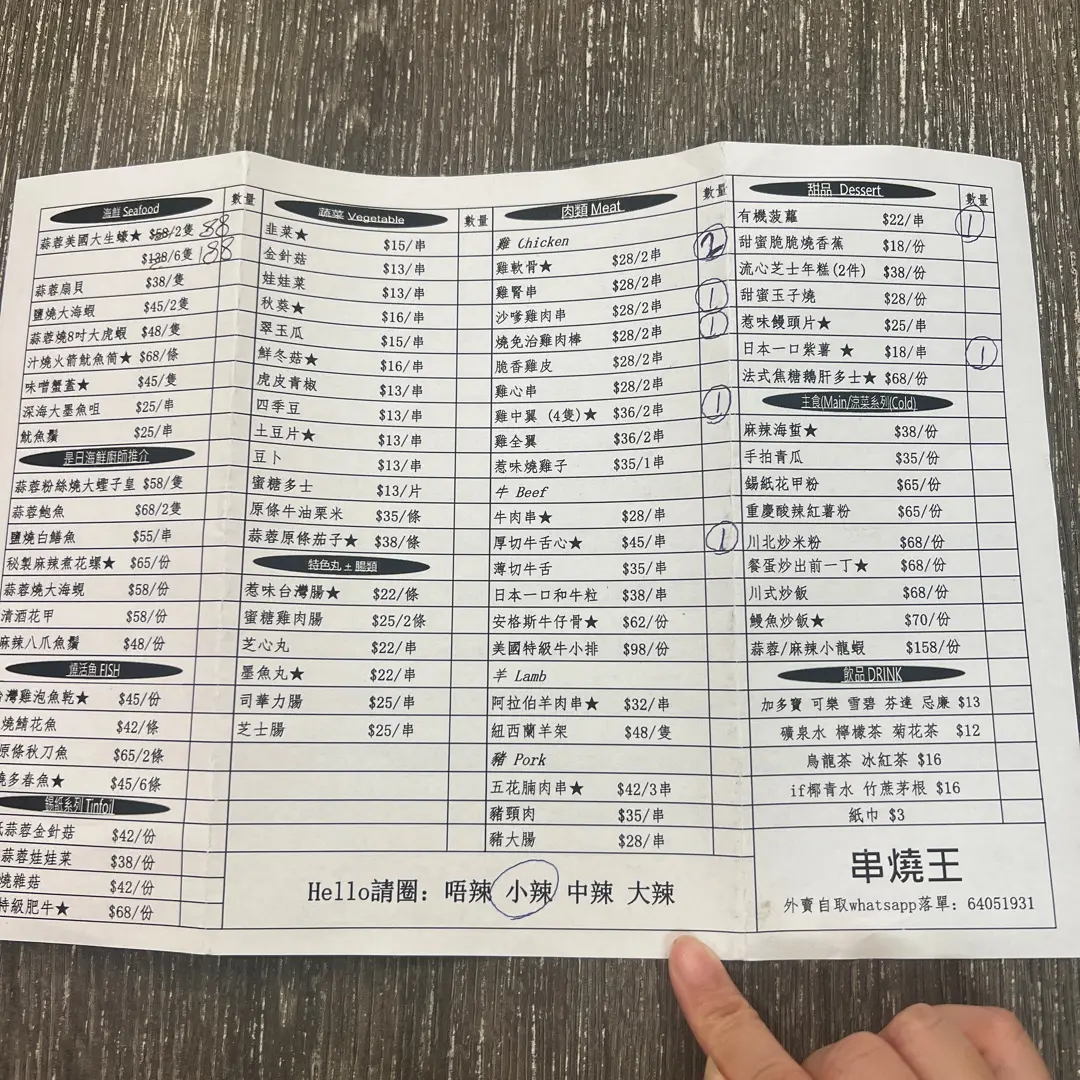 海鮮 Seafood 數量
蒜蓉美國大生蠔★ $58/2隻 88
$138/6隻 188
蒜蓉扇貝 $38/隻
鹽燒大海蝦 $45/2隻
蒜蓉燒8吋大虎蝦 $48/隻
汁燒火箭魷魚筒★ $68/條
味噌蟹蓋★ $45/隻
深海大墨魚咀 $25/串
魷魚鬚 $25/串
是日海鮮廚師推介
蒜蓉粉絲燒大蟶子皇 $58/隻
蒜蓉鮑魚 $68/2隻
鹽燒白鱔魚 $55/串
秘製麻辣煮花螺★ $65/份
蒜蓉燒大海蜆 $58/份
清酒花甲 $58/份
麻辣八爪魚鬚 $48/份
燒活魚 FISH
台灣雞泡魚乾★ $45/份
燒鯖花魚 $42/條
原條秋刀魚 $65/2條
燒多春魚★ $45/6條
錫紙系列 Tinfoil
紙蒜蓉金針菇 $42/份
蒜蓉娃娃菜 $38/份
燒雜菇 $42/份
特級肥牛★ $68/份
蔬菜 Vegetable 數量
韭菜★ $15/串
金針菇 $13/串
娃娃菜 $13/串
秋葵★ $16/串
翠玉瓜 $15/串
鮮冬菇★ $16/串
虎皮青椒 $13/串
四季豆 $13/串
土豆片★ $13/串
豆卜 $13/串
蜜糖多士 $13/片
原條牛油栗米 $35/條
蒜蓉原條茄子★ $38/條
特色丸 + 腸類
惹味台灣腸★ $22/條
蜜糖雞肉腸 $25/2條
芝心丸 $22/串
墨魚丸★ $22/串
司華力腸 $25/串
芝士腸 $25/串
肉類 Meat 數量
雞 Chicken
雞軟骨★ $28/2串 2
雞腎串 $28/2串
沙嗲雞肉串 $28/2串 1
燒免治雞肉棒 $28/2串 1
脆香雞皮 $28/2串
雞心串 $28/2串
雞中翼 (4隻)★ $36/2串 1
雞全翼 $36/2串
惹味燒雞子 $35/1串
牛 Beef
牛肉串★ $28/串
厚切牛舌心★ $45/串 1
薄切牛舌 $35/串
日本一口和牛粒 $38/串
安格斯牛仔骨★ $62/份
美國特級牛小排 $98/份
羊 Lamb
阿拉伯羊肉串★ $32/串
紐西蘭羊架 $48/隻
豬 Pork
五花腩肉串★ $42/3串
豬頸肉 $35/串
豬大腸 $28/串
Hello請圈: 唔辣 小辣 中辣 大辣
甜品 Dessert 數量
有機菠蘿 $22/串 1
甜蜜脆脆燒香蕉 $18/份
流心芝士年糕(2件) $38/份
甜蜜玉子燒 $28/份
惹味饅頭片★ $25/串
日本一口紫薯 ★ $18/串 1
法式焦糖鵝肝多士★ $68/份
主食(Main/涼菜系列(Cold)
麻辣海蜇★ $38/份
手拍青瓜 $35/份
錫紙花甲粉 $65/份
重慶酸辣紅薯粉 $65/份
川北炒米粉 $68/份
餐蛋炒出前一丁★ $68/份
川式炒飯 $68/份
鰻魚炒飯★ $70/份
蒜蓉/麻辣小龍蝦 $158/份
飲品 DRINK
加多寶 可樂 雪碧 芬達 忌廉 $13
礦泉水 檸檬茶 菊花茶 $12
烏龍茶 冰紅茶 $16
if椰青水 竹蔗茅根 $16
紙巾 $3
串燒王
外賣自取whatsapp落單: 64051931